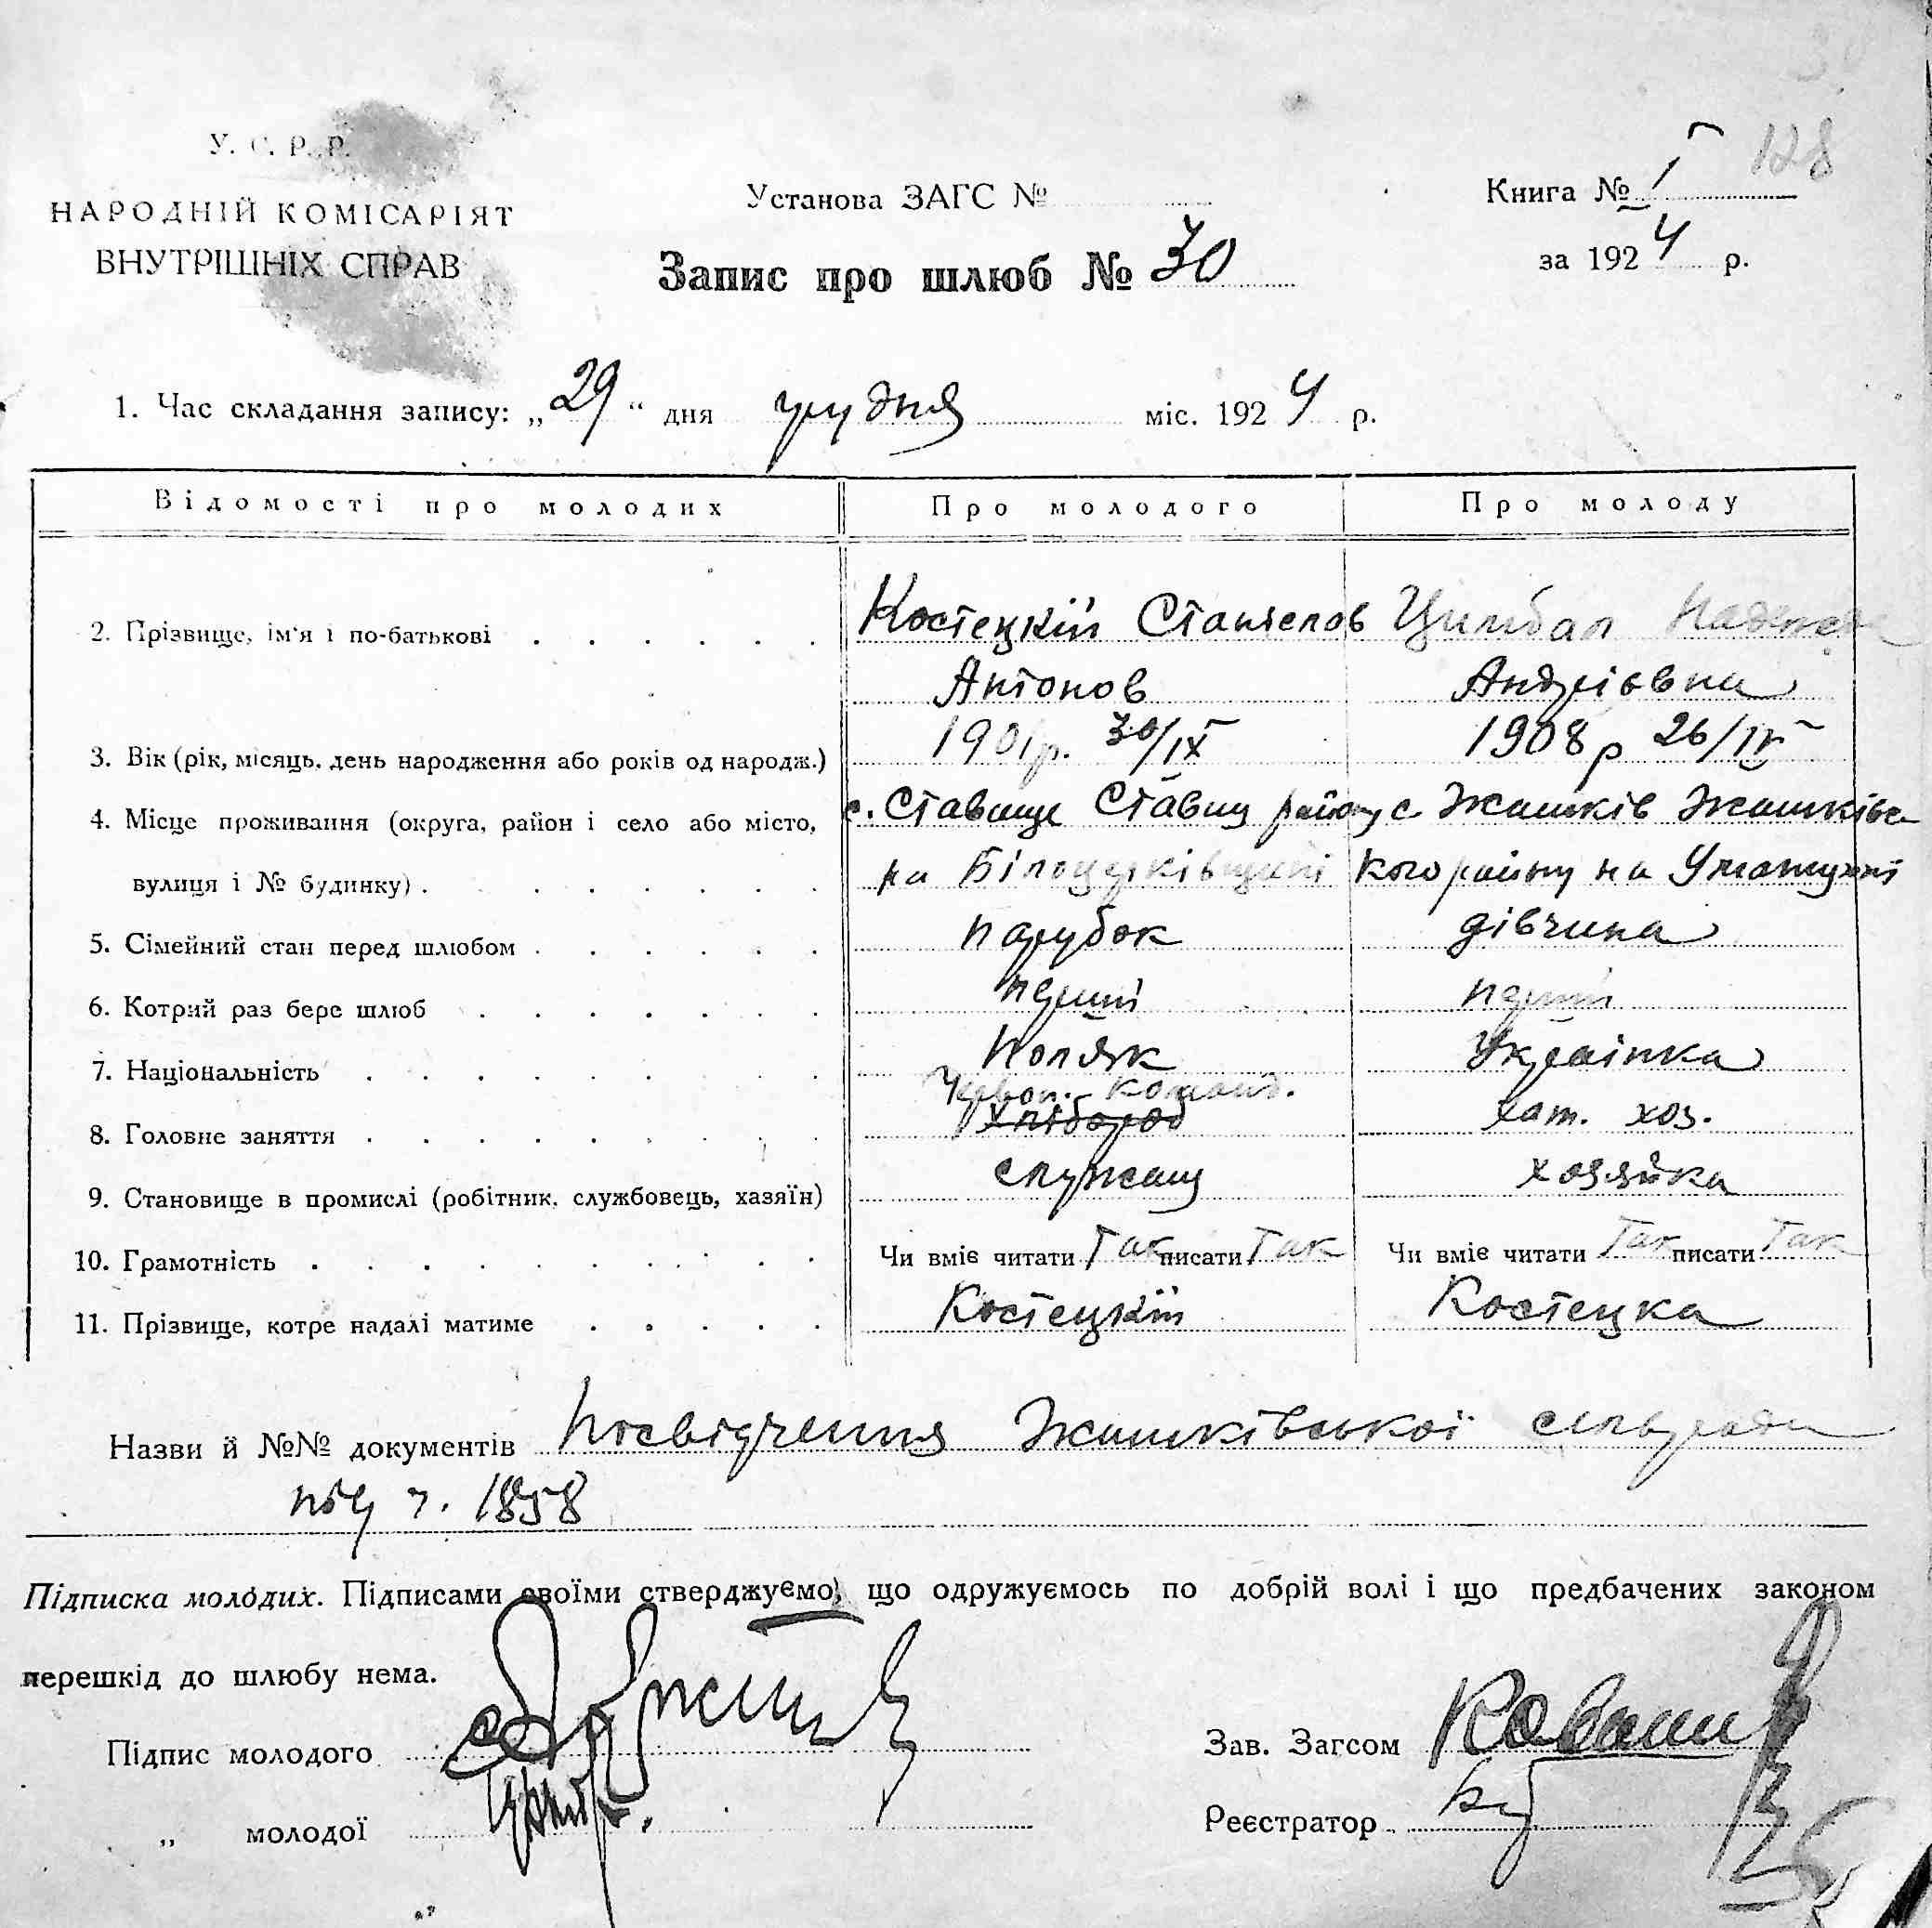 128
У. С. Р. Р.
НАРОДНІЙ КОМІСАРІЯТ
ВНУТРІШНІХ СПРАВ
Установа ЗАГС №
Книга № I
за 1924 р.
Запис про шлюб № 30
1. Час складання запису: „29“ дня грудня міс. 1924 р.
Відомості про молодих Про молодого Про молоду
2. Прізвище, ім'я і по-батькові Костецкій Станіслов Цимбал Надежда
Антонов Андріівна
3. Вік (рік, місяць, день народження або років од народж.) 1901р. 30/IX 1908 р 26/IV
4. Місце проживання (округа, район і село або місто, с. Ставище Ставищ району с Жашків Жашківс
вулиця і № будинку) на Білоцерківщині кого району на Уманщині
5. Сімейний стан перед шлюбом парубок дівчина
6. Котрий раз бере шлюб перший перший
7. Національність Поляк Українка
Червон. команд.
8. Головне заняття хлібороб хат. хоз.
9. Становище в промислі (робітник, службовець, хазяїн) служащ хозяйка
10. Грамотність Чи вміє читати Так писати Так Чи вміє читати Так писати Так
11. Прізвище, котре надалі матиме Костецкій Костецка
Назви й №№ документів Посвідчення Жашківської сельради
під ч. 1858
Підписка молодих. Підписами своїми стверджуємо, що одружуємось по добрій волі і що предбачених законом
перешкід до шлюбу нема.
Підпис молодого
Зав. Загсом
„ молодої
Реєстратор